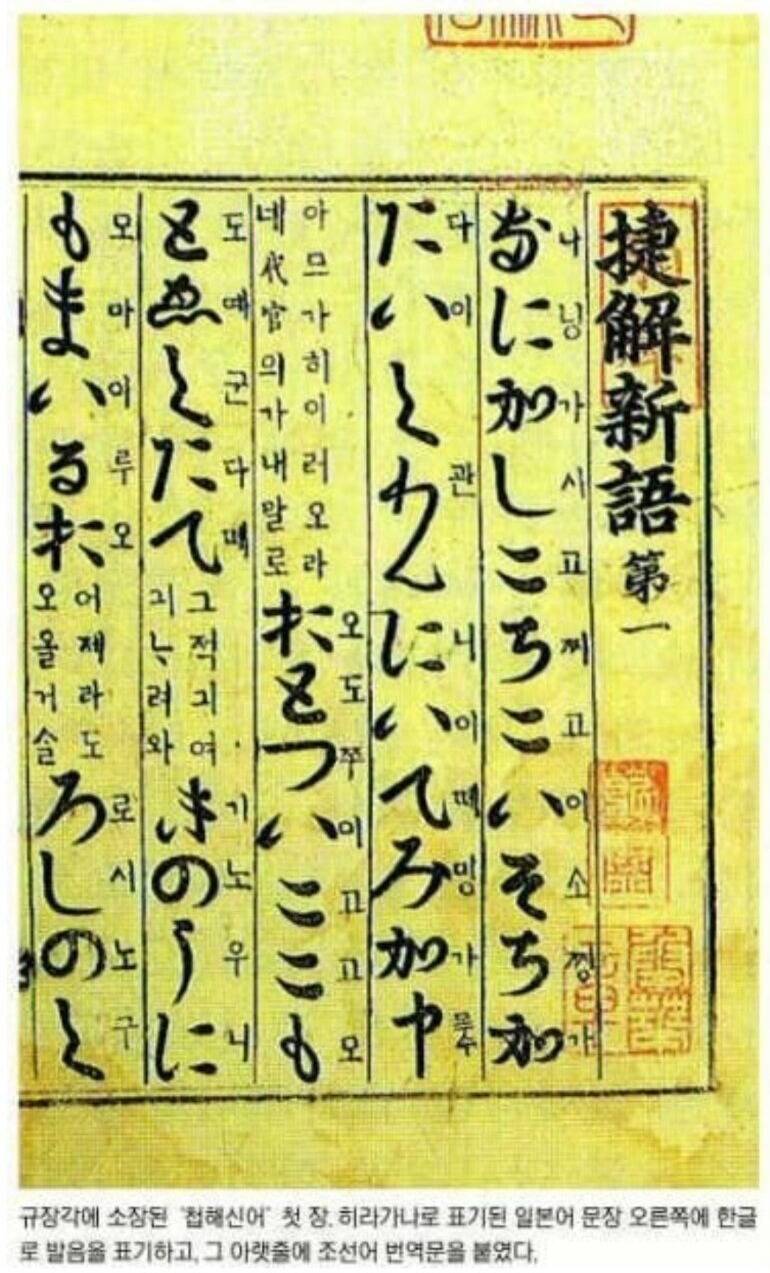 捷解新語 第一
나닝가시고찌고이소찡가
なに加しこちこいそち加
다이관니이떼밍가
たいくわんにいてみ加申
아므가히이러오라
네代官의가내말로
오도쭈이고고모
おとついここも
도예군다떼
とゑくたて
그적긔여
긔ᄂᆞ려와
기노우니
きのうに
모마이루오
もまいるお
어제라도
오올거슬
로시노구
ろしのく
규장각에 소장된 '첩해신어' 첫 장. 히라가나로 표기된 일본어 문장 오른쪽에 한글
로 발음을 표기하고, 그 아랫줄에 조선어 번역문을 붙였다.